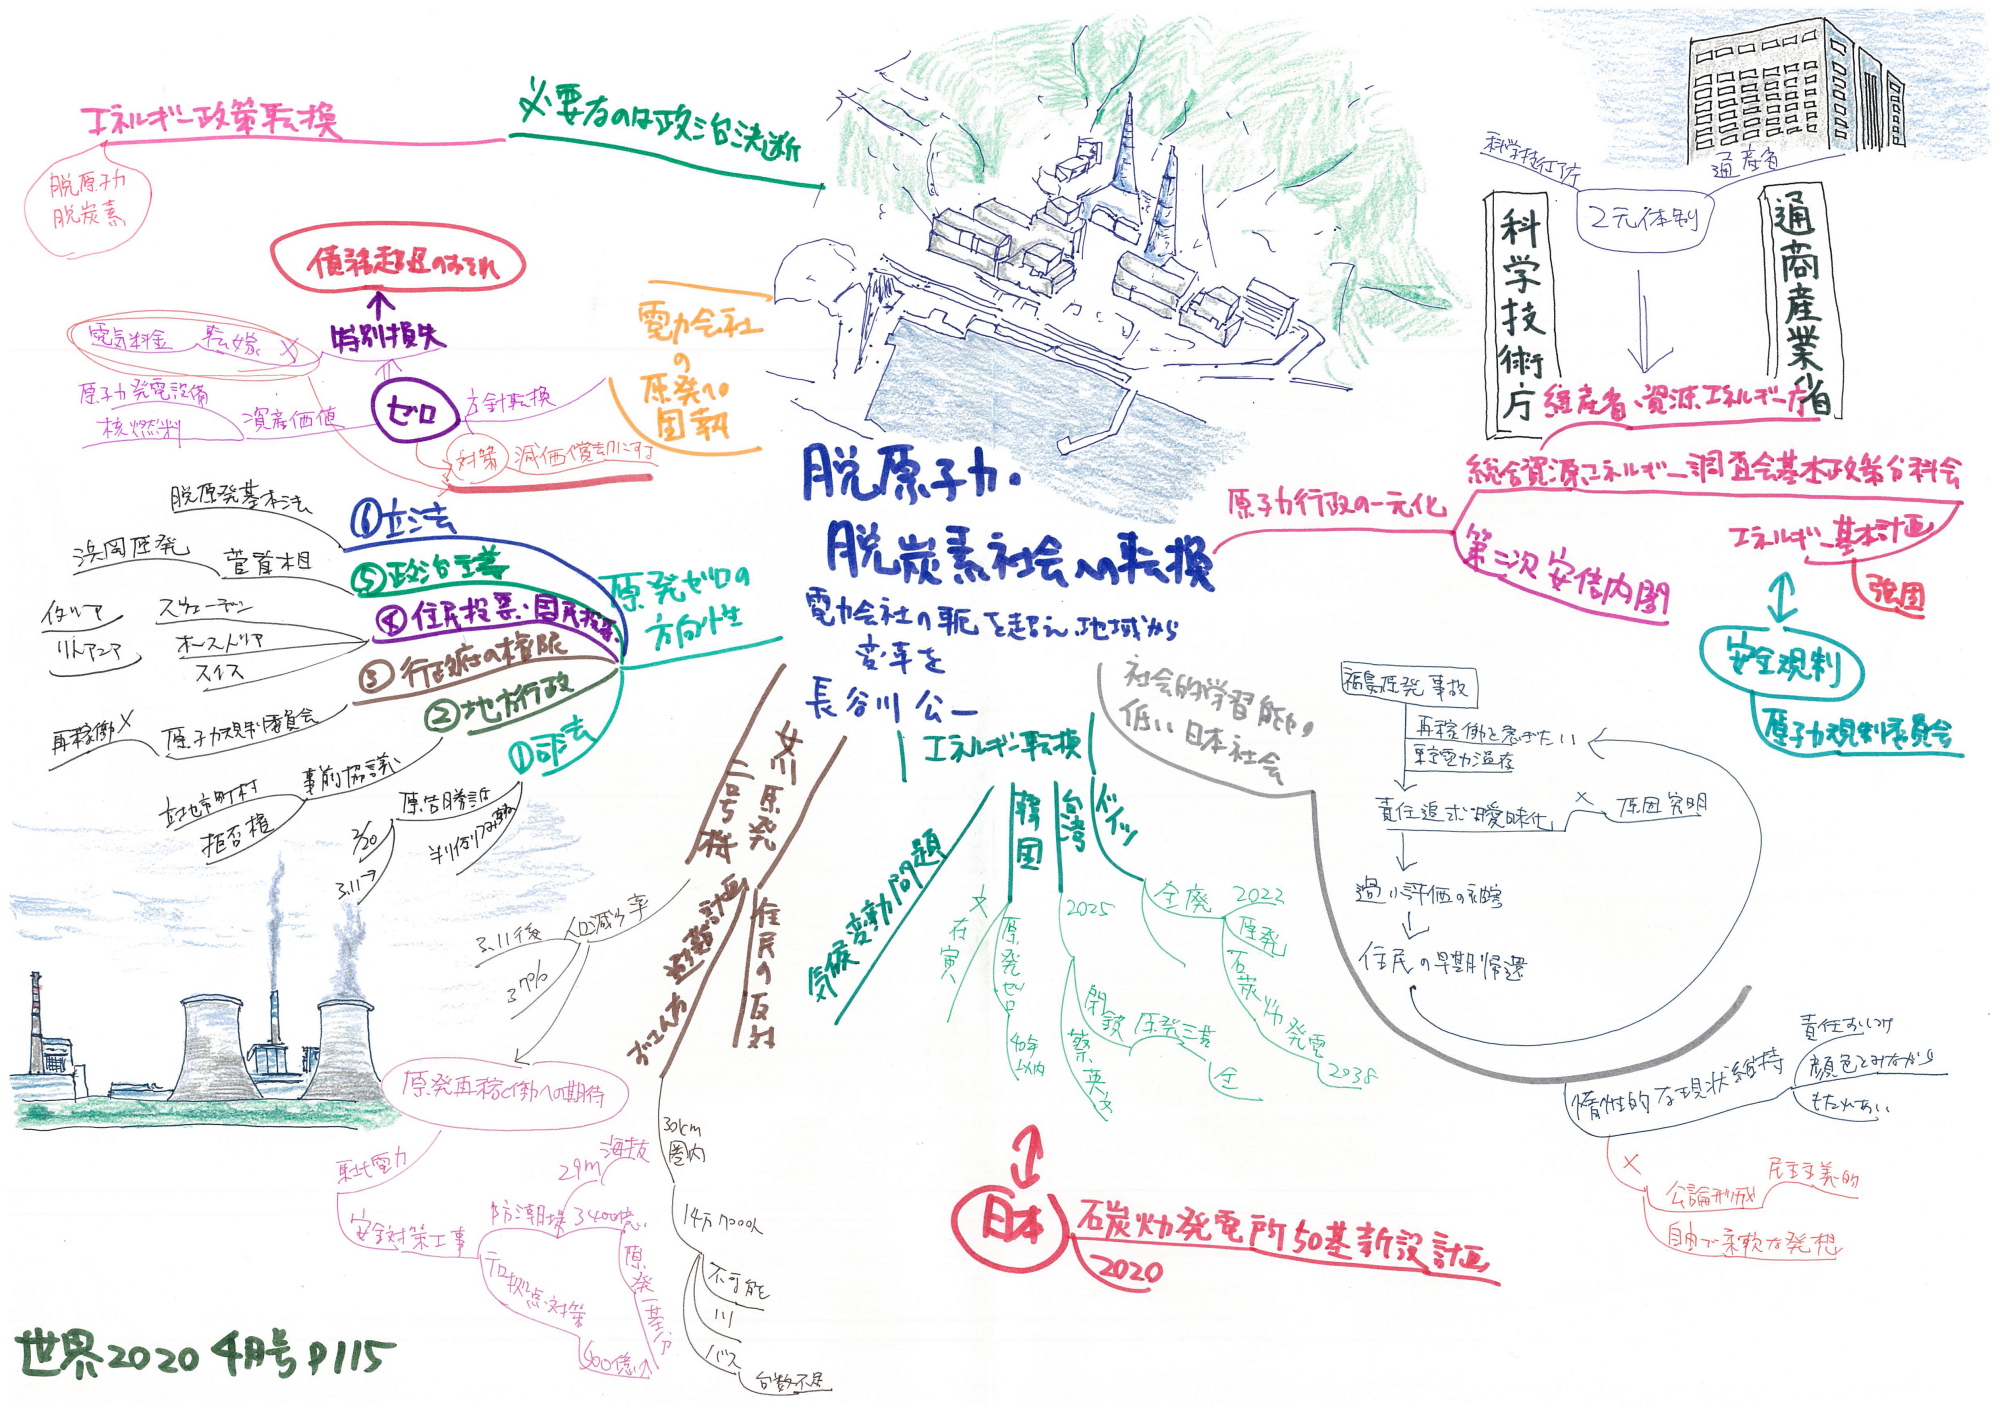 脱原子力・
脱炭素社会への転換
電力会社の軛を超え、地域から
変革を
長谷川公一
必要なのは政治決断
エネルギー政策転換
脱原子力
脱炭素
電力会社
の
原発への
固執
方針転換
ゼロ
特別損失
債務超過のおそれ
電気料金
転嫁
×
資産価値
原子力発電設備
核燃料
対策
減価償却にする
原発ゼロの
方向性
⑥立法
脱原発基本法
⑤政治主導
菅首相
浜岡原発
④住民投票・国民投票
スウェーデン
オーストリア
スイス
イタリア
リトアニア
③行政府の権限
原子力規制委員会
再稼働×
②地方行政
事前協議
立地市町村
拒否権
①司法
原告勝訴
3.11→
判例つみ重ね
女川原発
二号機
人口減少率
3.11後
37%
原発再稼働への期待
東北電力
安全対策工事
防潮堤
3400億
29m
海抜
テロ拠点対策
600億
原発一基分
住民の反対
ずさんな
避難計画
30km
圏内
不可能
バス
台数不足
エネルギー転換
気候変動問題
韓国
文在寅
原発ゼロ
40年
以内
台湾
2025
閉鎖
原発三基
全
蔡英文
ドイツ
全廃
2022
原発
石炭火力発電
2038
日本
石炭火力発電所50基新設計画
2020
社会的学習能力
低い日本社会
福島原発事故
再稼働を急ぎたい
東京電力温存
責任追求曖昧化
×
原因究明
過小評価
住民の早期帰還
惰性的な現状維持
責任おしつけ
顔色をみながら
もたれあい
×
公論形成
民主主義的
自由で柔軟な発想
原子力行政の一元化
科学技術庁
通産省
2元体制
科学技術庁
通商産業省
経産省・資源エネルギー庁
総合資源エネルギー調査会基本政策分科会
エネルギー基本計画
強固
第二次安倍内閣
安全規制
原子力規制委員会
世界2020 4月号 P115